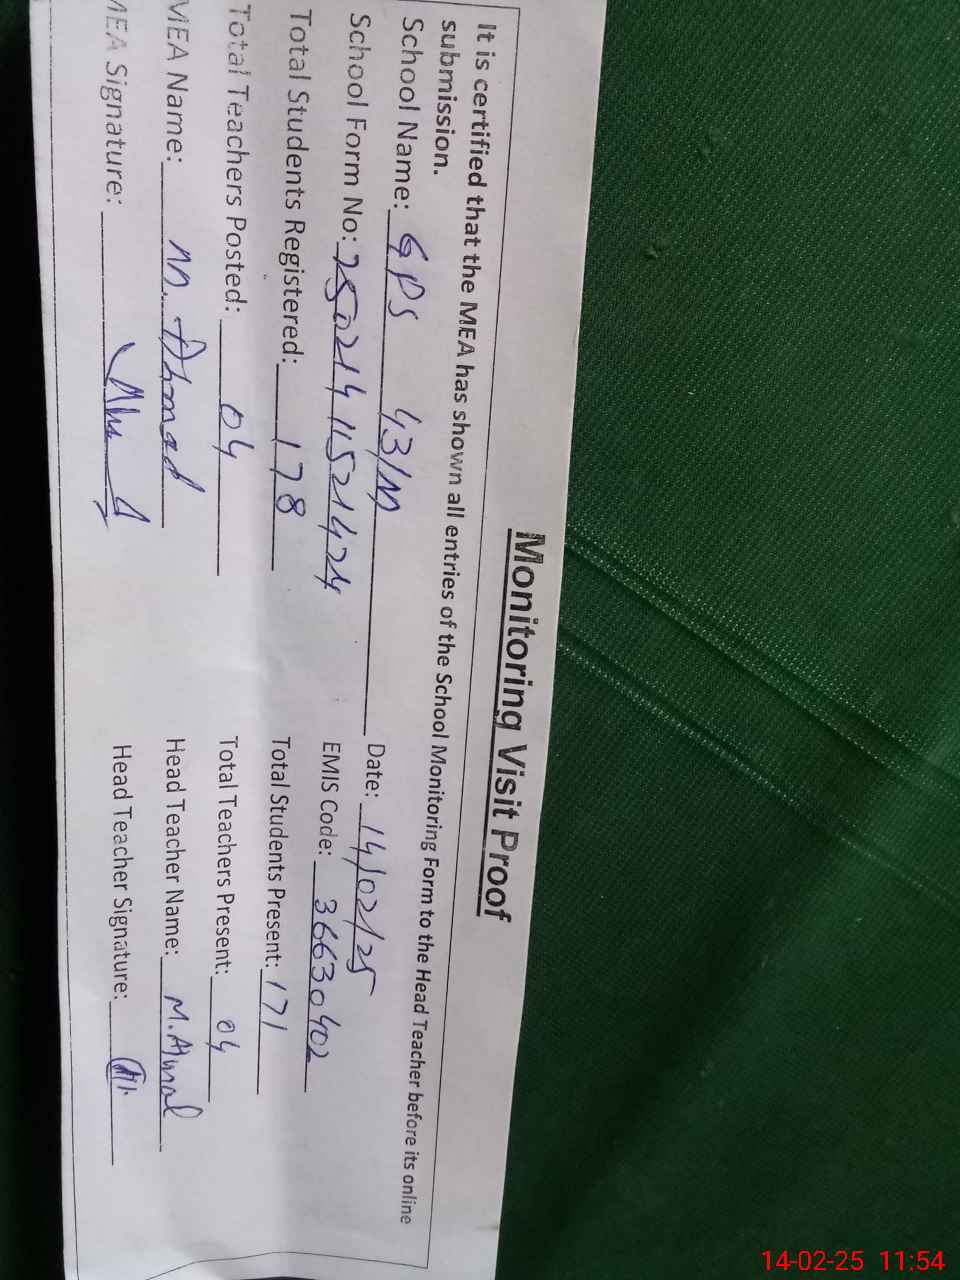 Monitoring Visit Proof
It is certified that the MEA has shown all entries of the School Monitoring Form to the Head Teacher before its online
submission.
School Name: GPS 43/M Date: 14/02/25
School Form No: 25021411521424 EMIS Code: 36630402
Total Students Registered: 178 Total Students Present: 171
Total Teachers Posted: 04 Total Teachers Present: 04
MEA Name: M. Ahmad Head Teacher Name: M. Ajmal
MEA Signature: Head Teacher Signature:
14-02-25 11:54